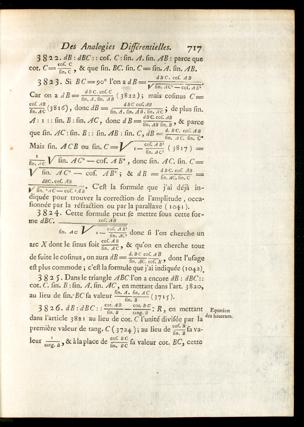 Des Analogies Différentielles. 717
3822. dB : dBC :: cos. C : sin. A. sin. AB : parce que
cot. C = cos. C / sin. C, & que sin. BC. sin. C = sin. A. sin. AB.
3823. Si BC = 90° l'on a dB = dBC. cos. AB / √ sin. AC² — cos. AB².
Car on a dB = dBC. cos. C / sin. A. sin. AB (3822); mais cosinus C =
cos. AB / sin. AC (3816), donc dB = dBC cos. AB / sin. A. sin. AB. sin. AC ; de plus sin.
A : 1 :: sin. B : sin. AC, donc dB = dBC. cos. AB / sin. AB sin. B , & parce
que sin. AC : sin. B :: sin. AB : sin. C, dB = d. BC. cos. AB / sin. AC. sin. C
Mais sin. ACB ou sin. C = √ 1 — cos. AB² / sin. AC² (3817) =
1 / sin. AC √ sin. AC² — cos. AB², donc sin. AC. sin. C =
√ sin. AC² — cos. AB² ; & dB = dBC. cos. AB / sin. AC. sin. C =
dBC. cos. AB / √ sin. AC² — cos. AB². C'est la formule que j'ai déjà in-
diquée pour trouver la correction de l'amplitude, occa-
sionnée par la réfraction ou par la parallaxe (1041).
3824. Cette formule peut se mettre sous cette for-
me dBC. cos. AB / sin. AC √ 1 — cos. AB² / sin. AC² donc si l'on cherche un
arc X dont le sinus soit cos. AB / sin. AC , & qu'on en cherche tout
de suite le cosinus, on aura dB = d. BC cos. AB / sin. AC. cos. X , dont l'usage
est plus commode ; c'est la formule que j'ai indiquée (1042).
3825. Dans le triangle ABC l'on a encore dB : dBC ::
cot. C. sin. B : sin. A. sin. AC, en mettant dans l'art. 3820,
au lieu de sin. BC sa valeur sin. A. sin. AC / sin. B (3715).
3826. dB : dBC :: cot. AB / sin. B — cot. BC / tang. B : R, en mettant
Équation
des hauteurs.
dans l'article 3821 au lieu de cot. C l'unité divisée par la
première valeur de tang. C (3724) ; au lieu de cos. B / sin. B sa va-
leur 1 / tang. B , & à la place de cos. BC / sin. BC sa valeur cot. BC, cette